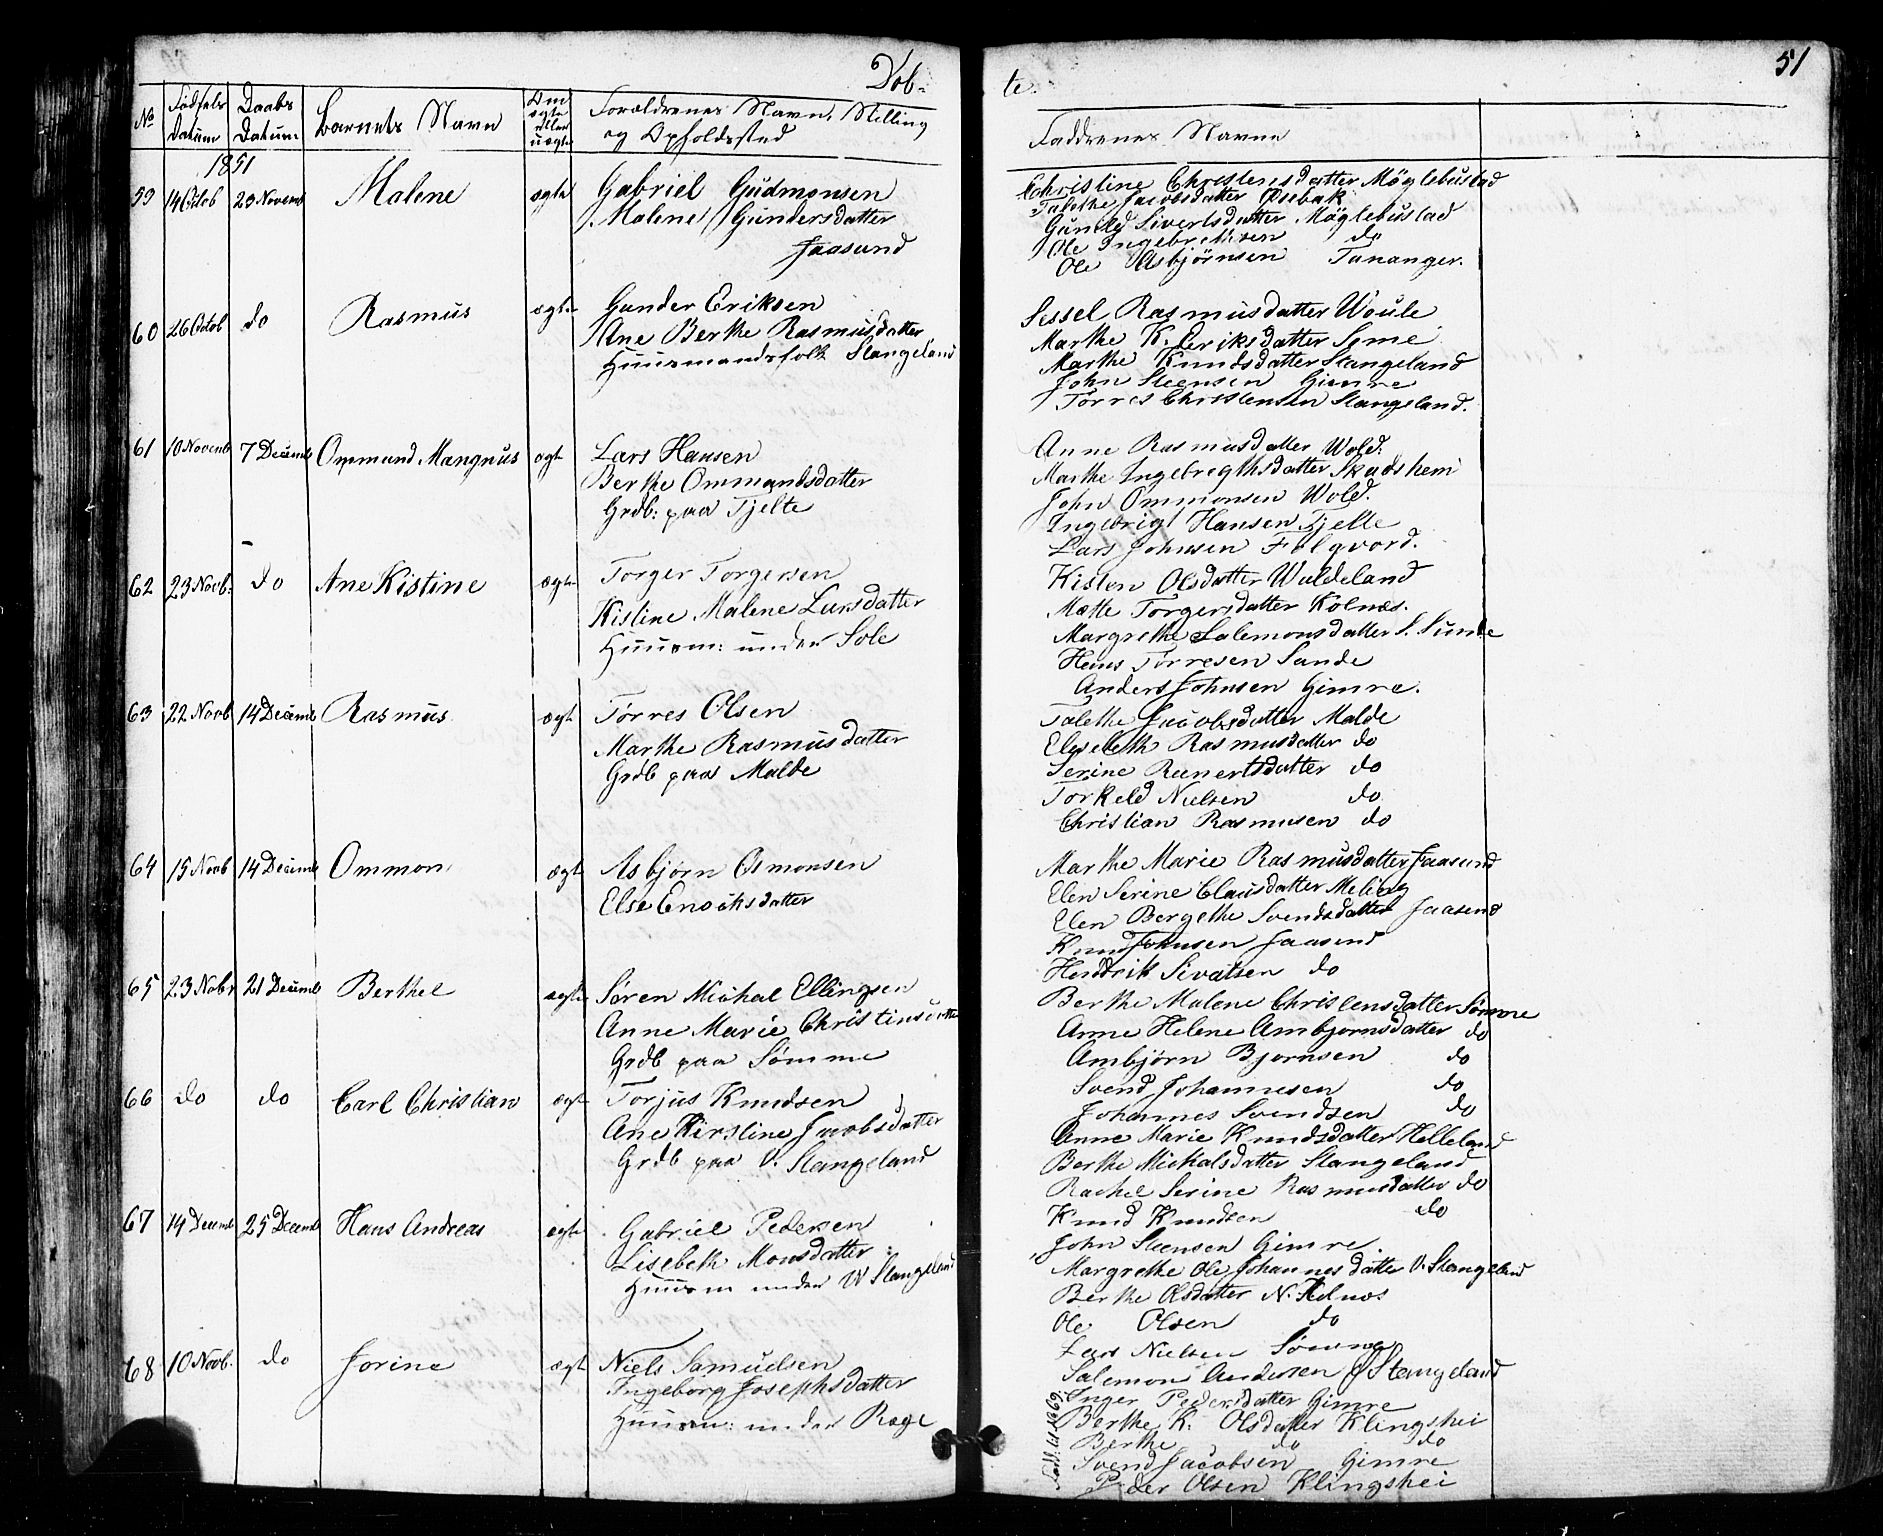 Døb-
te
51
No
Fødsels Datum
Daabs Datum
Barnets Navn
Om ægte eller uægte
Forældrenes Navn, Stilling og Opholdssted
Faddrenes Navne
1851
59 14 Octob 23 Novemb Malene ægte Gabriel Gudmonsen
Malene Gundersdatter
Jaasund
Christine Christensdatter Møglebustad
Talethe Jacobsdatter Risebak
Gunild Sivertsdatter Møglebustad
Ole Ingebrethsen do
Ole Asbjørnsen Tananger.
60 26 Octob do Rasmus ægte Gunder Eriksen
Ane Berthe Rasmusdatter
Huusmandsfolk Stangeland
Sissel Rasmusdatter Woule
Marthe K. Eriksdatter Søme
Marthe Knudsdatter Stangeland
John Steensen Gimre
Tørres Christensen Stangeland.
61 10 Novemb 7 Decemb Ommund Mangnus ægt Lars Hansen
Berthe Ommundsdatter
Grdb: paa Tjelte
Anne Rasmusdatter Wold.
Marthe Ingebregthsdatter Skadshem
John Ommonsen Wold.
Ingebrigt Hansen Tjelte
Lars Johnsen Følgvord.
62 23 Novb: do Ane Kistine ægte Torger Torgersen
Kistine Malene Larsdatter
Huusm: under Sole
Kisten Olsdatter Waldeland
Mætte Torgersdatter Kolnæs.
Margrethe Salemonsdatter S. Sunde
Hans Tørresen Sande
Anders Johnsen Gimre.
63 22 Novb 14 Decemb Rasmus ægt Tørres Olsen
Marthe Rasmusdatter
Grdb paa Malde
Talethe Jacobsdatter Malde
Elesebeth Rasmusdatter do
Serine Reinertsdatter do
Torkeld Nielsen do
Christian Rasmusen do
64 15 Novb 14 Decemb Ommon ægt Asbjørn Osmonsen
Else Enochsdatter
Marthe Marie Rasmusdatter Jaasund
Elen Serine Clausdatter Meling
Elen Bergethe Svendsdatter Jaasund
Knud Johnsen Jaasund
Hendrik Sivalsen do
65 23 Nobr 21 Decemb Berthel ægte Søren Michal Ellingsen
Anne Marie Christinsdatter
Grdb paa Sømme
Berthe Malene Christensdatter Sømme
Anne Helene Ambjørnsdatter do
Ambjørn Bjørnsen do
Svend Johannesen do
Johannes Svendsen do
66 do do Carl Christian ægt Torjus Knudsen
Ane Kirstine Jacobsdatter
Grdb paa V. Stangeland
Anne Marie Knudsdatter Helleland
Berthe Mickalsdatter Stangeland
Rachel Serine Rasmusdatter do
Knud Knudsen do
John Steensen Gimre
67 14 Decemb 25 Decemb Hans Andreas ægte Gabriel Pedersen
Lisebeth Monsdatter
Huusm under W Stangeland
Margrethe Ole Johannesdatter V. Stangeland
Berthe Olsdatter N. Kolnæs
Ole Olsen do
Lars Nielsen Sømme
Salemon Andersen Stangeland
68 10 Novb. do Jorine ægt Niels Samuelsen
Ingeborg Josephsdatter
Huusm: under Ræge
Inger Pedersdatter Gimre
Berthe K. Olsdatter Klingshei
Berthe do do
Svend Jacobsen Gimre
Peder Olsen Klingshei